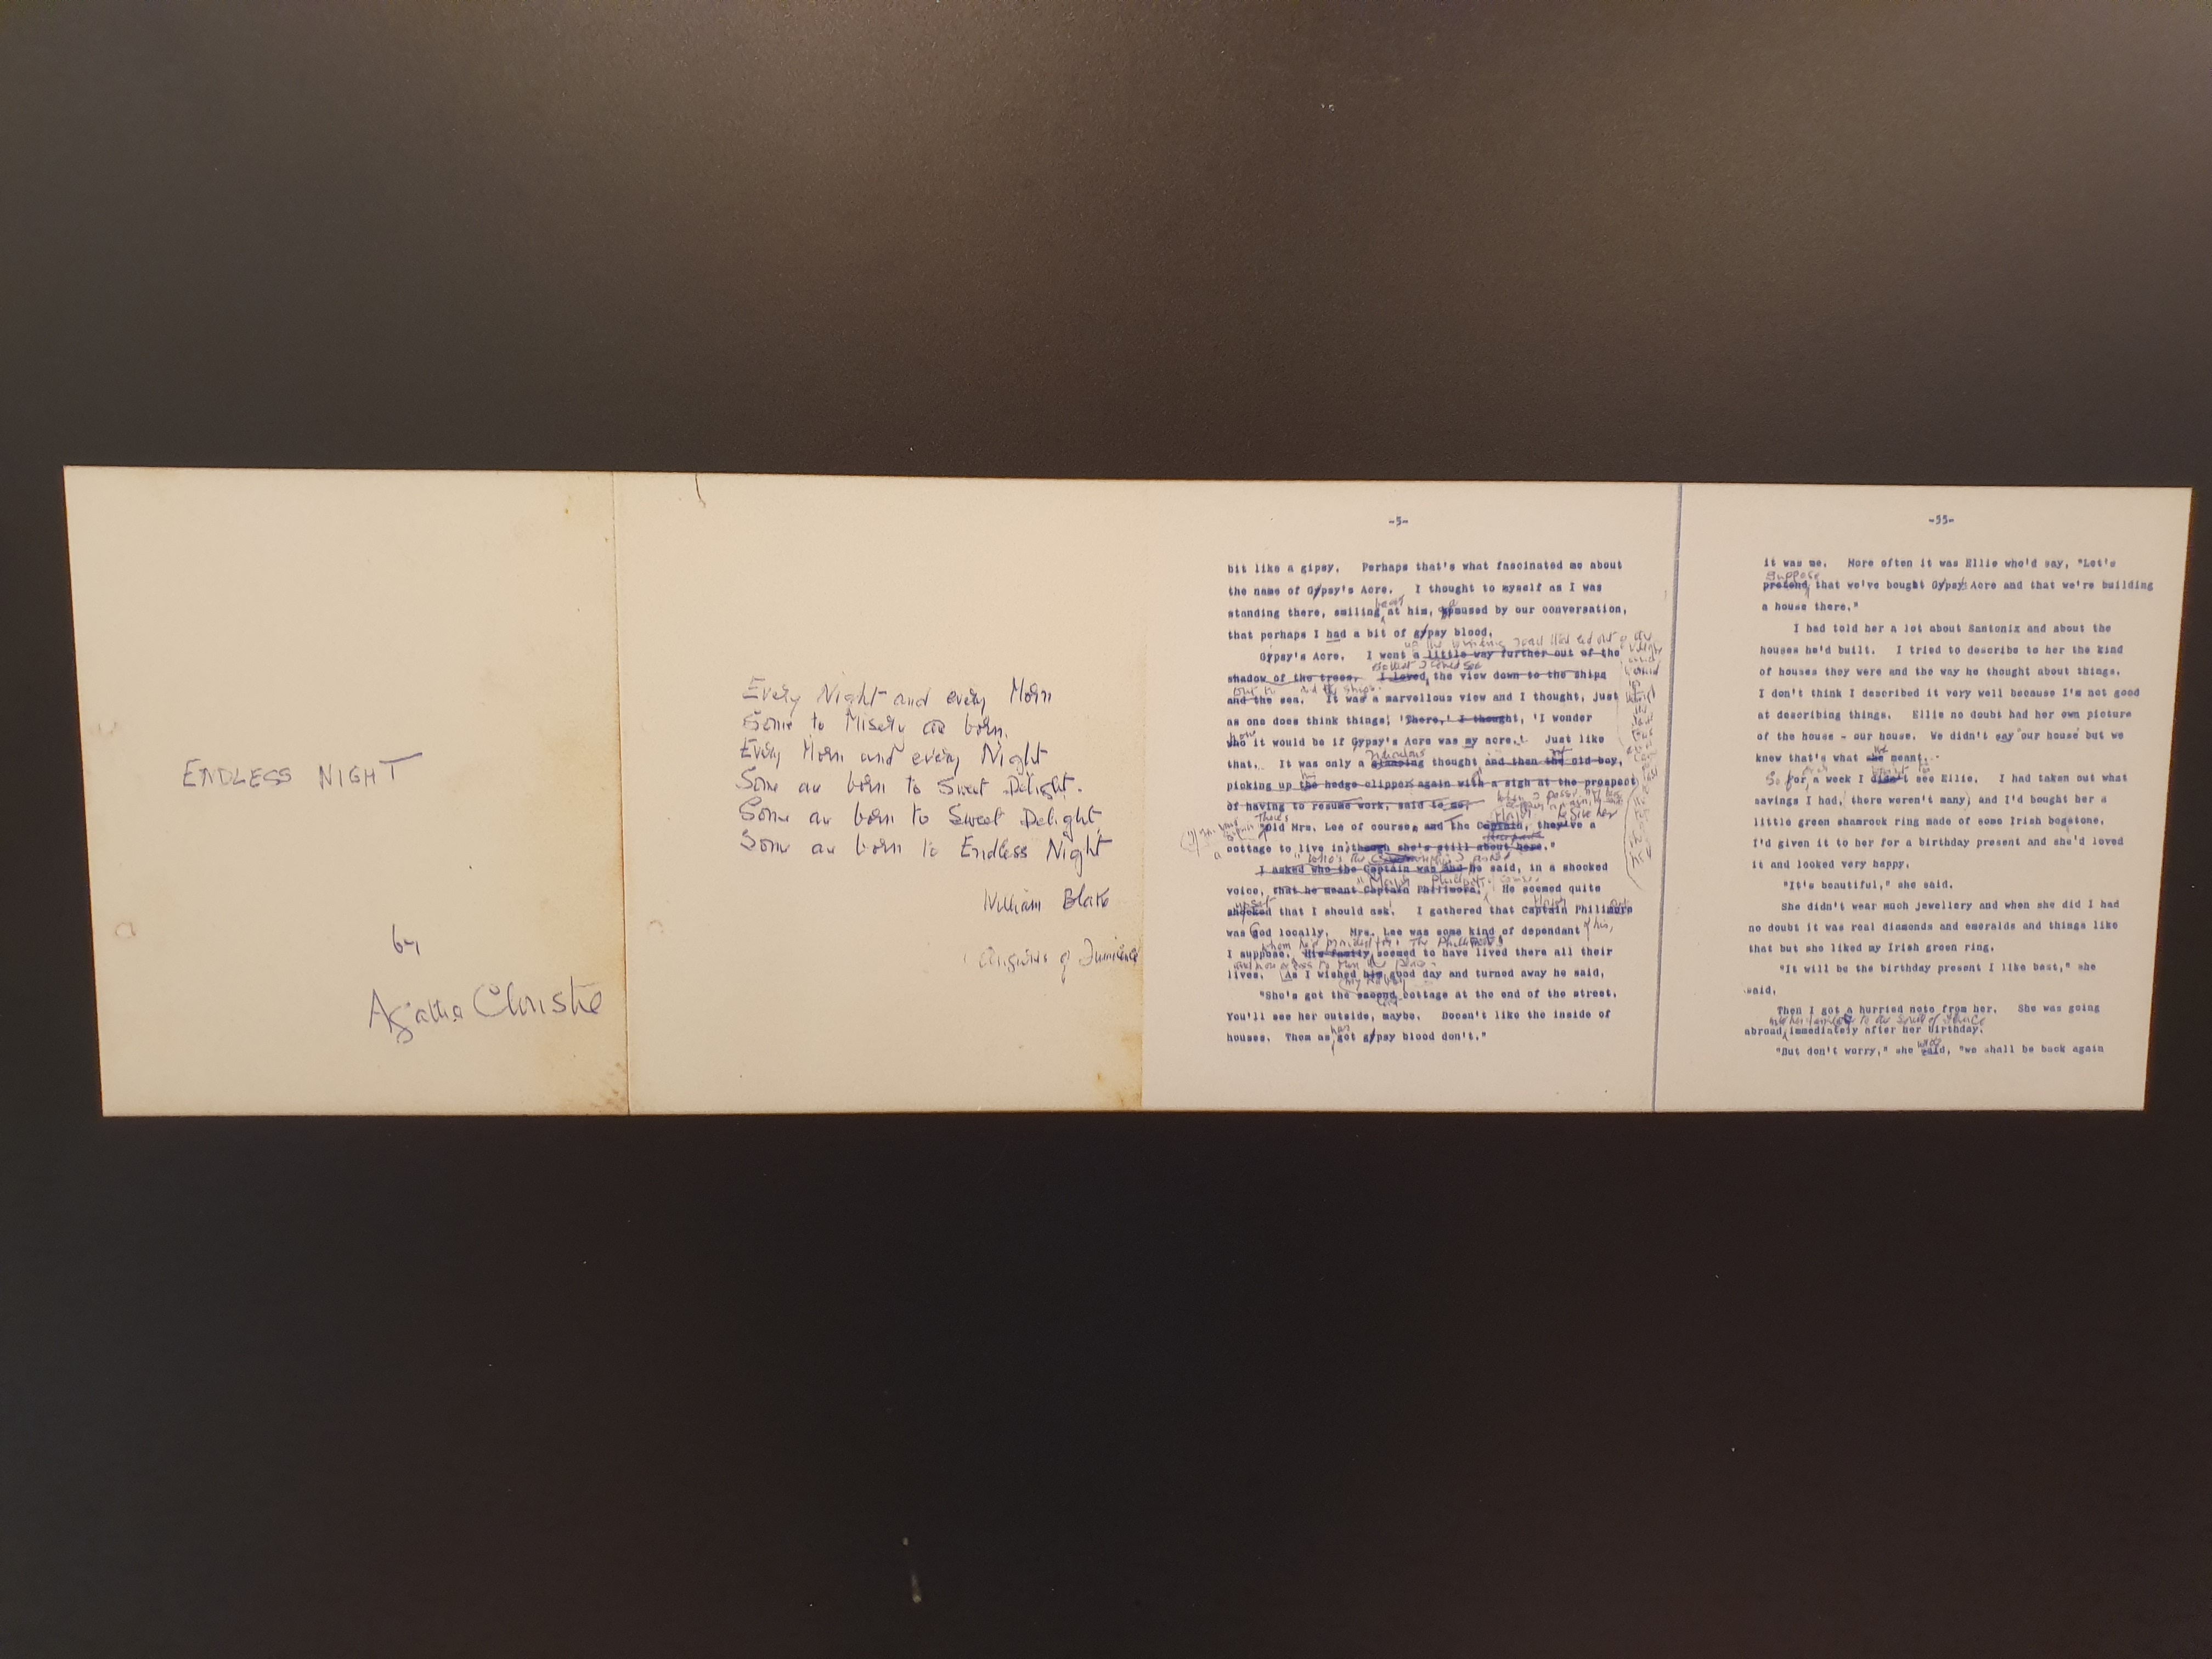 ENDLESS NIGHT
by
Agatha Christie
Every Night and every Morn
Some to Misery are born.
Every Morn and every Night
Some are born to Sweet Delight.
Some are born to Sweet Delight,
Some are born to Endless Night
William Blake
Auguries of Innocence
-5-
bit like a gipsy. Perhaps that's what fascinated me about
the name of Gypsy's Acre. I thought to myself as I was
back
standing there, smiling at him, amused by our conversation,
that perhaps I had a bit of gypsy blood.
up the winding road that led out of the
Gypsy's Acre. I went a little way further out of the
so that I could see
shadow of the trees. I loved the view down to the ships
out to and the ships.
and the sea. It was a marvellous view and I thought, just
as one does think things, 'There,' I thought, 'I wonder
how
who it would be if Gypsy's Acre was my acre.' Just like
ridiculous
that. It was only a glancing thought and then the old boy,
picking up the hedge clipper again with a sigh at the prospect
of having to resume work, said to me,
There's
"Old Mrs. Lee of course, and the Captain, they've a
cottage to live in though she's still about here."
"Who's the I asked
I asked who the Captain was and he said, in a shocked
"Major Phillpot, of course.
voice, that he meant Captain Phillmore. He seemed quite
upset Major
shocked that I should ask. I gathered that Captain Phillmore
was God locally. Mrs. Lee was some kind of dependant of his,
whom he provided for. The Phillpots
I suppose. His family seemed to have lived there all their
and more or less to run the place.
lives. As I wished him good day and turned away he said,
"She's got the second cottage at the end of the street.
You'll see her outside, maybe. Doesn't like the inside of
has
houses. Them as got gypsy blood don't."
-55-
it was me. More often it was Ellie who'd say, "Let's
suppose
pretend that we've bought Gypsy's Acre and that we're building
a house there."
I had told her a lot about Santonix and about the
houses he'd built. I tried to describe to her the kind
of houses they were and the way he thought about things.
I don't think I described it very well because I'm not good
at describing things. Ellie no doubt had her own picture
of the house - our house. We didn't say 'our house' but we
we
knew that's what she meant.
So for a week I didn't see Ellie. I had taken out what
savings I had, (there weren't many) and I'd bought her a
little green shamrock ring made of some Irish bogstone.
I'd given it to her for a birthday present and she'd loved
it and looked very happy.
"It's beautiful," she said.
She didn't wear much jewellery and when she did I had
no doubt it was real diamonds and emeralds and things like
that but she liked my Irish green ring.
"It will be the birthday present I like best," she
said.
Then I got a hurried note from her. She was going
with her family to the South of France
abroad immediately after her birthday.
wrote
"But don't worry," she said, "we shall be back again